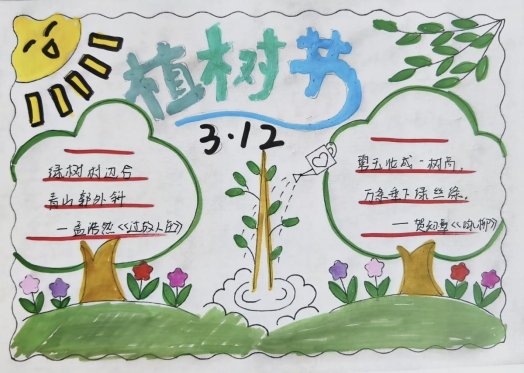 植树节
3·12
绿树村边合
青山郭外斜
—孟浩然《过故人庄》
碧玉妆成一树高，
万条垂下绿丝绦。
—贺知章《咏柳》